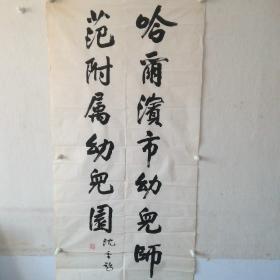 哈爾濱市幼兒師
范附属幼兒園
沈